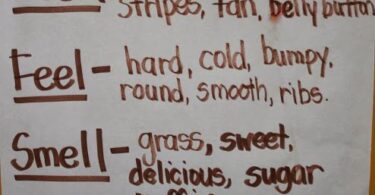 stripes, tan, belly button
Feel - hard, cold, bumpy,
round, smooth, ribs.
Smell - grass, sweet,
delicious, sugar